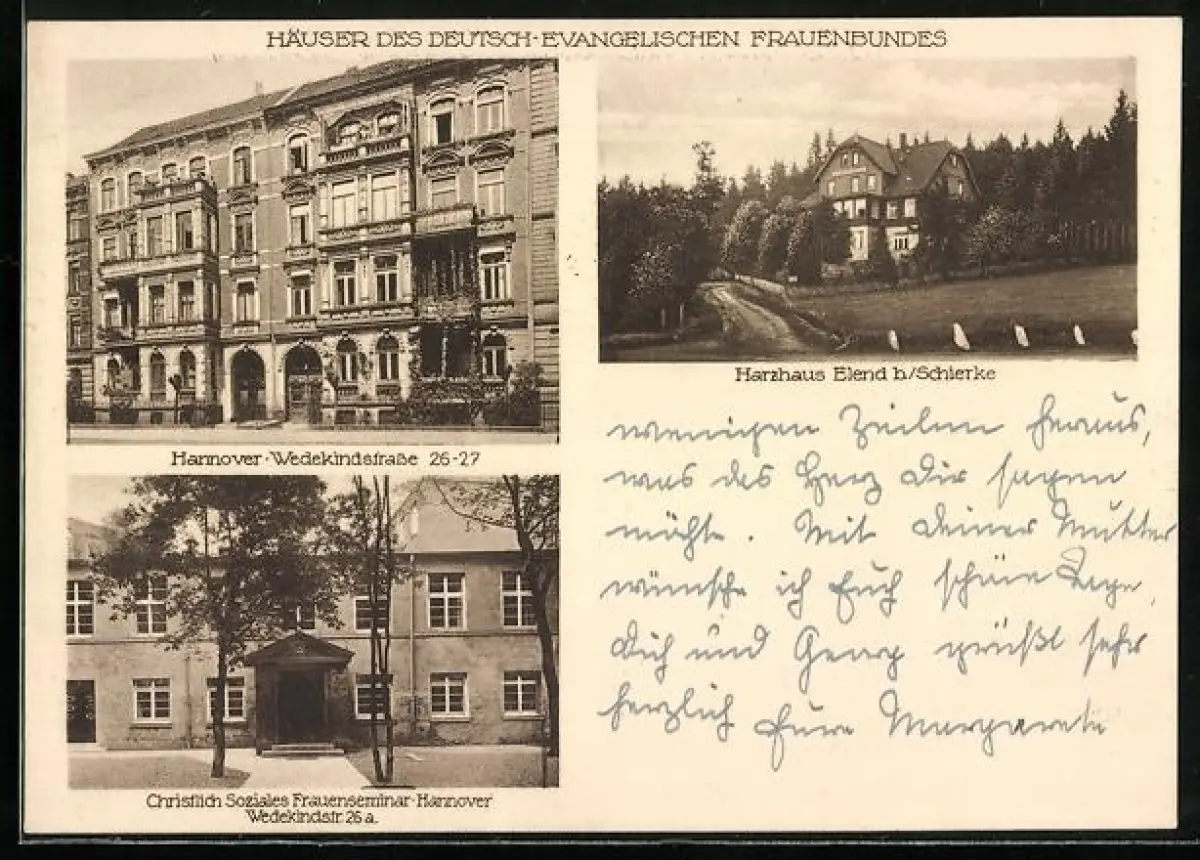 HÄUSER DES DEUTSCH-EVANGELISCHEN FRAUENBUNDES
Hannover-Wedekindstraße 26-27
Harzhaus Elend b/Schierke
Christlich Soziales Frauenseminar-Hannover
Wedekindstr. 26 a.
wenigen Zeilen heraus,
was das Herz Dir sagen
möchte. Mit Deiner Mutter
wünsche ich Euch schöne Tage,
Dich und Georg grüßt sehr
herzlich Eure Margarete